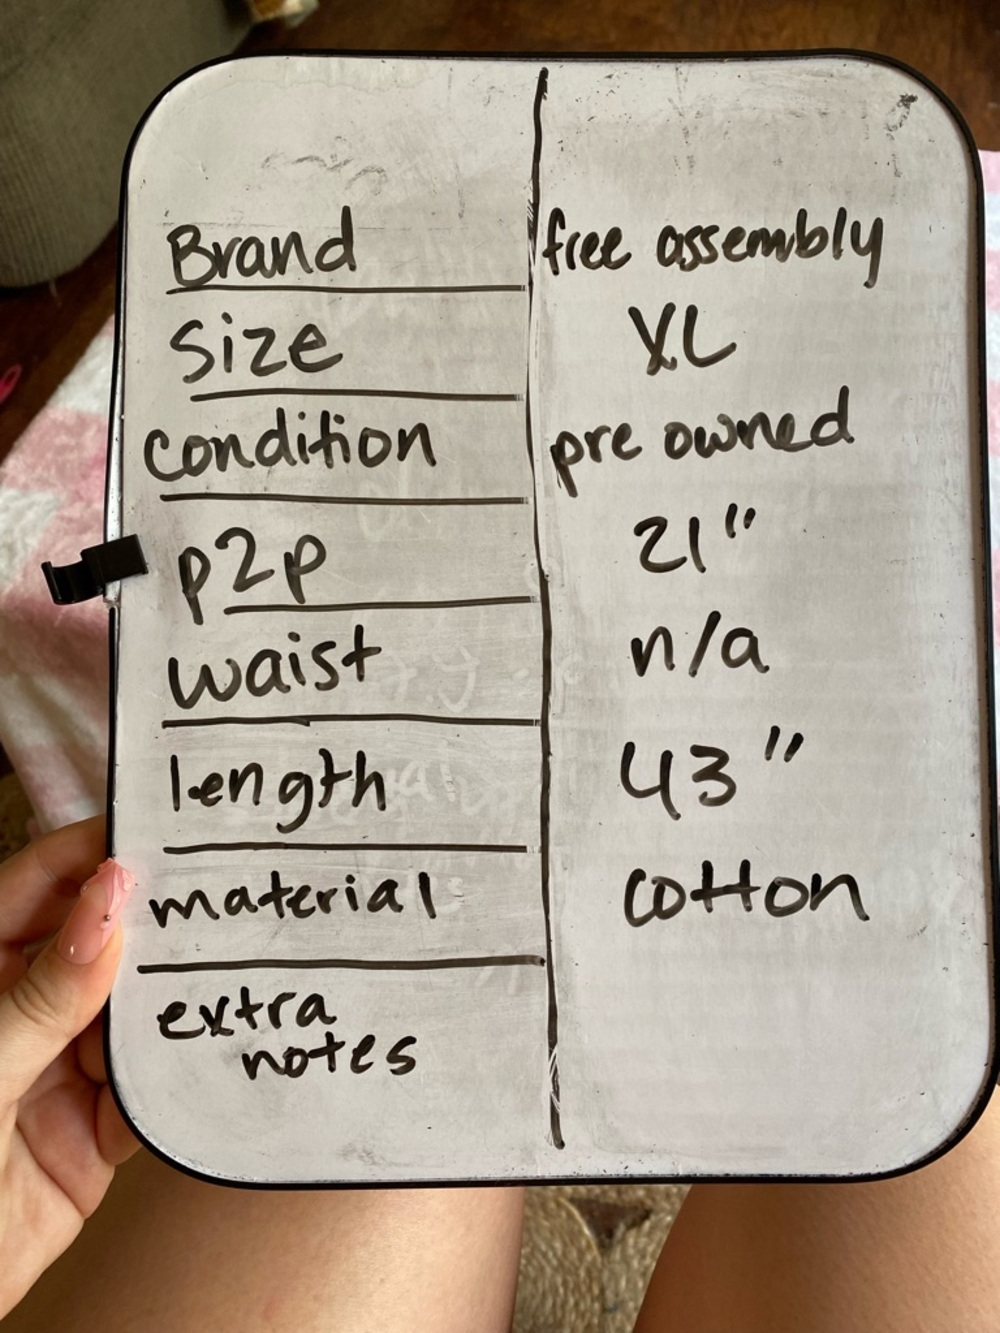 Brand free assembly
Size XL
condition pre owned
p2p 21"
waist n/a
length 43"
material cotton
extra
notes